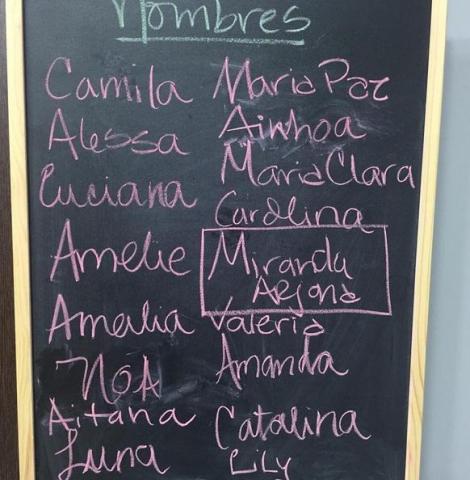 Nombres
Camila
Alessa
Luciana
Amelie
Amalia
NOA
Aitana
Luna
Maria Paz
Ainhoa
Maria Clara
Carolina
Miranda
Arjona
Valeria
Amanda
Catalina
Lily